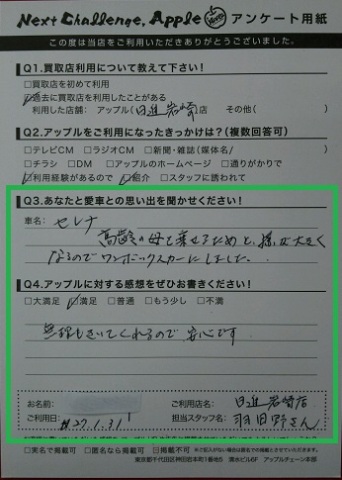 Next Challenge, Apple アンケート用紙
この度は当店をご利用いただきありがとうございました。
Q1.買取店利用について教えて下さい!
□買取店を初めて利用
☑過去に買取店を利用したことがある
利用した店舗： アップル(日進岩崎)店 その他( )
Q2.アップルをご利用になったきっかけは?(複数回答可)
□テレビCM □ラジオCM □新聞・雑誌(媒体名/ )
□チラシ □DM □アップルのホームページ □通りがかりで
☑利用経験があるので ☑紹介 □スタッフに誘われて
Q3.あなたと愛車との思い出を聞かせください!
車名： セレナ
高齢の母を乗せるためと、孫が大きく
なるのでワンボックスカーにしました。
Q4.アップルに対する感想をぜひお書きください!
□大満足 ☑満足 □普通 □もう少し □不満
無理もきいてくれるので安心です
お名前： ご利用店名： 日進岩崎店
ご利用日： H27.1.31 担当スタッフ名： 羽田野さん
□実名で掲載可 □匿名なら掲載可 □掲載不可
東京都千代田区神田岩本町1番地5 清水ビル6F アップルチェーン本部